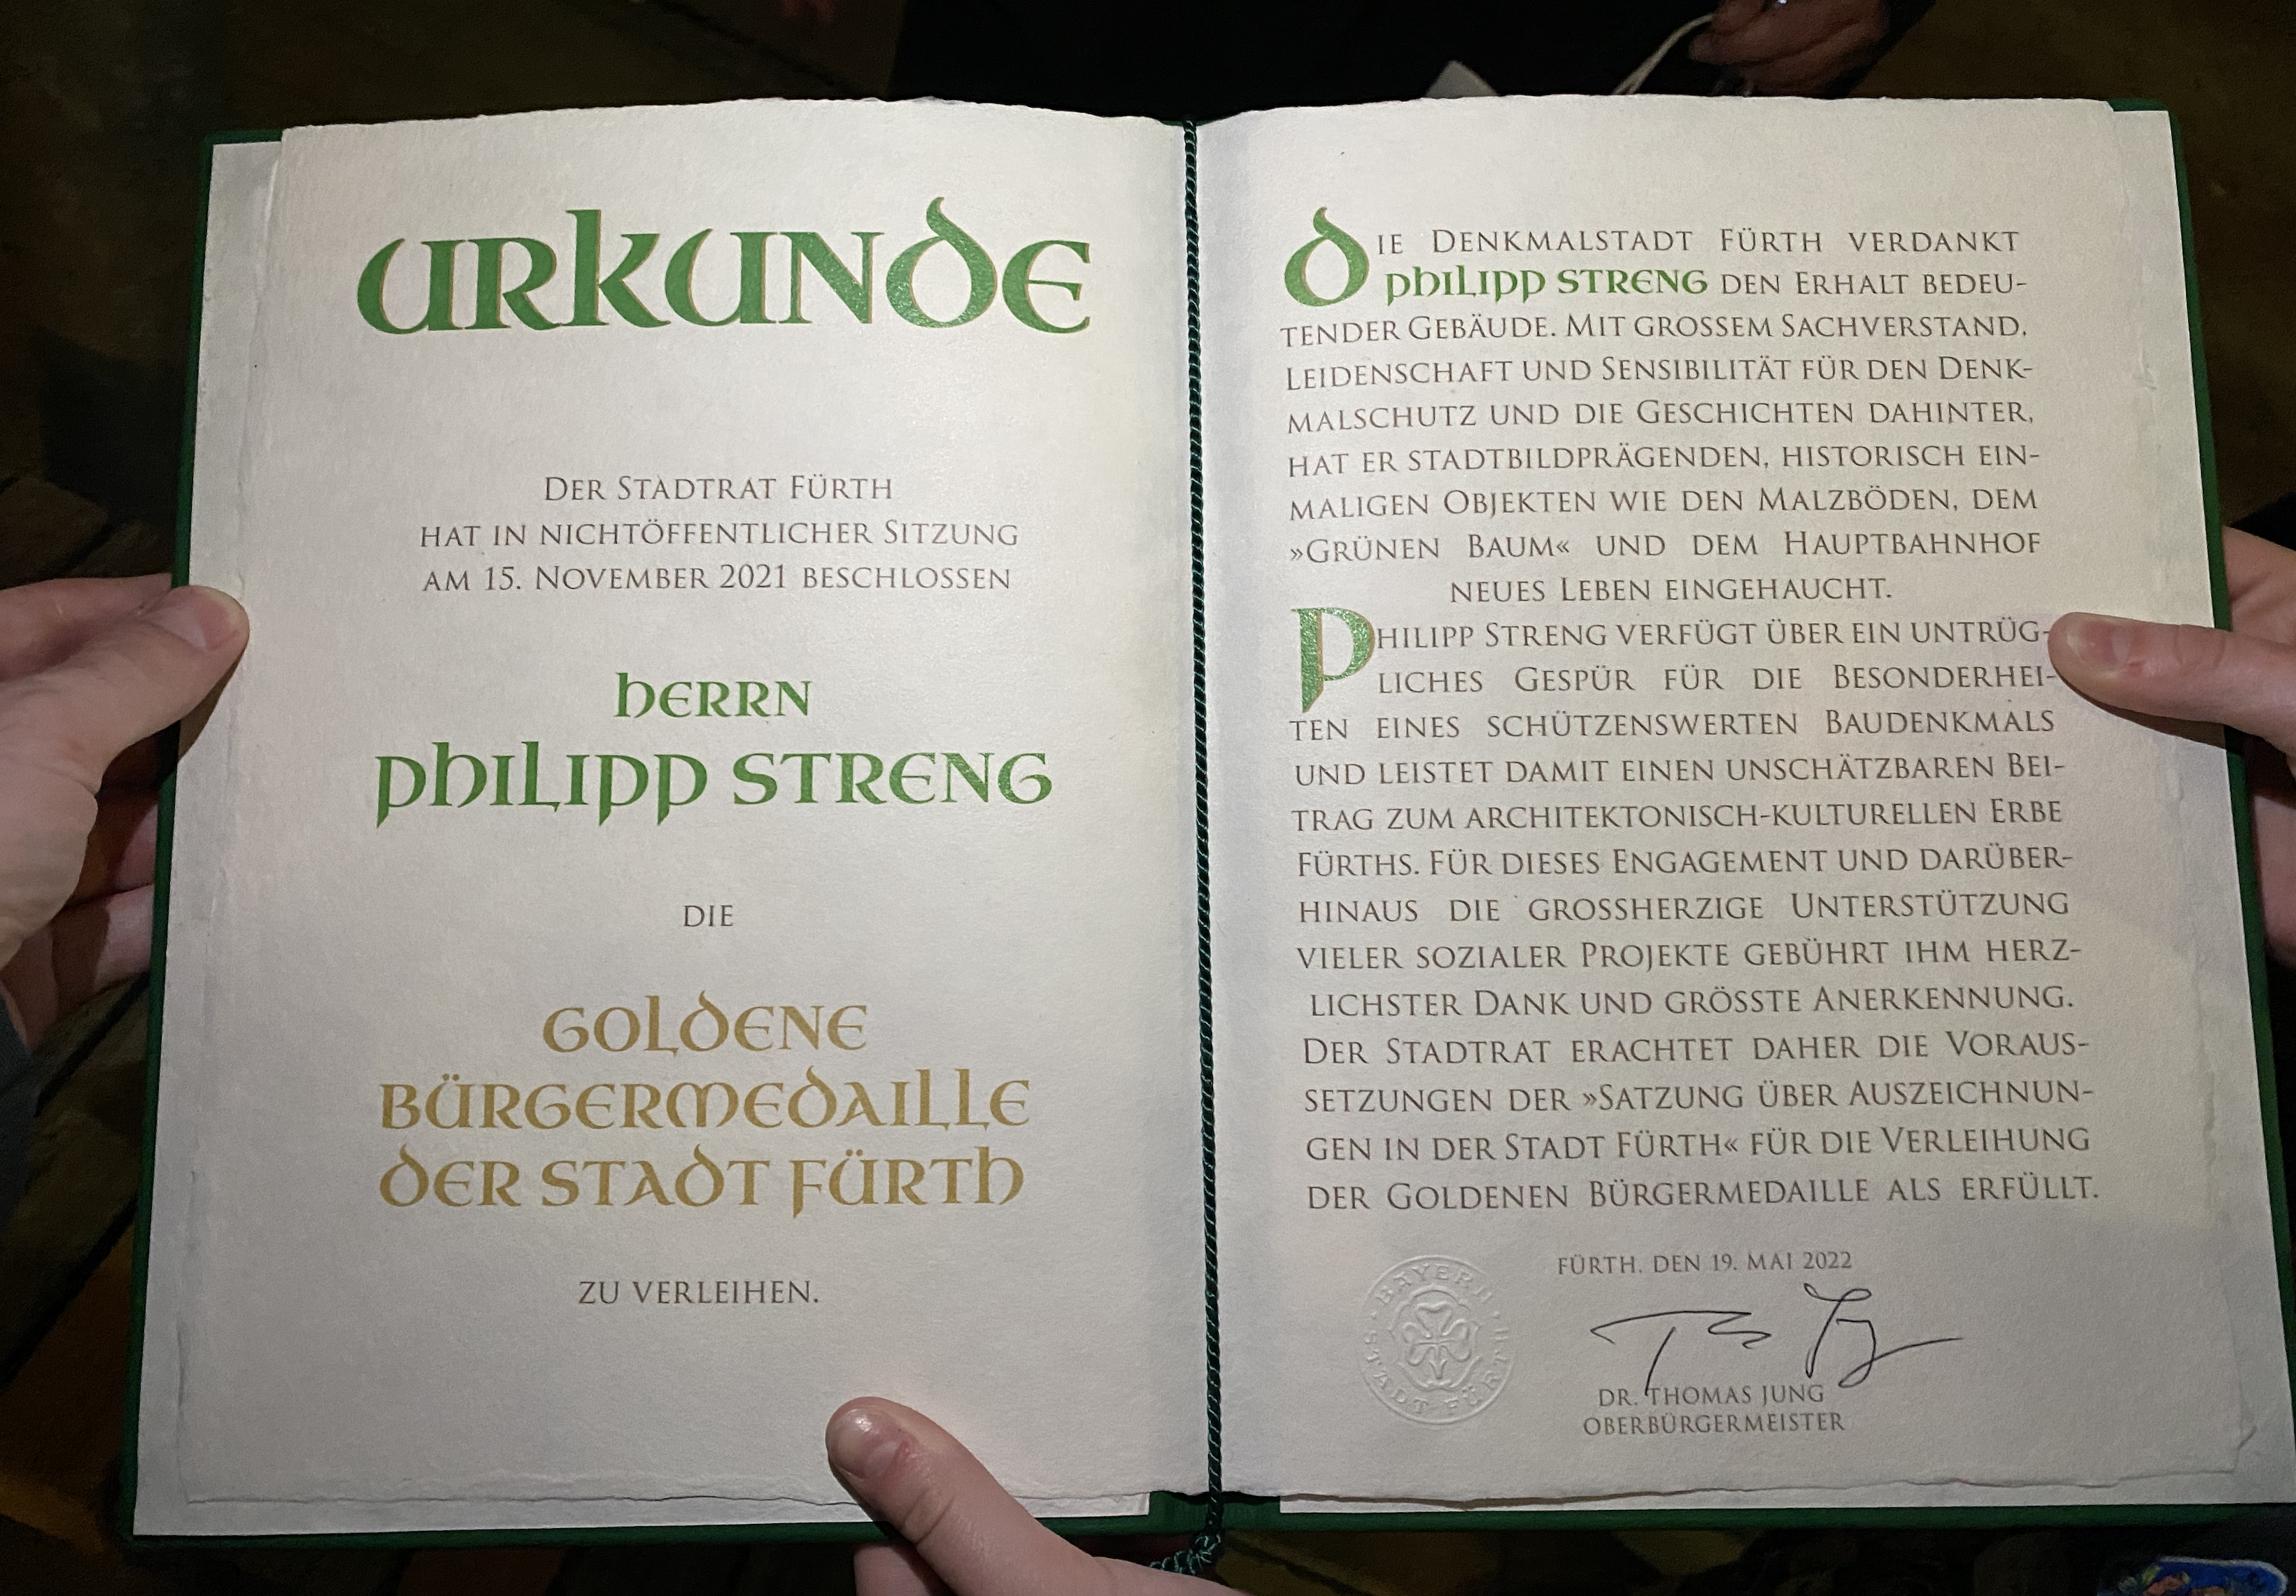 URKUNDE
DER STADTRAT FÜRTH
HAT IN NICHTÖFFENTLICHER SITZUNG
AM 15. NOVEMBER 2021 BESCHLOSSEN
HERRN
PHILIPP STRENG
DIE
GOLDENE
BÜRGERMEDAILLE
DER STADT FÜRTH
ZU VERLEIHEN.
DIE DENKMALSTADT FÜRTH VERDANKT
PHILIPP STRENG DEN ERHALT BEDEU-
TENDER GEBÄUDE. MIT GROSSEM SACHVERSTAND,
LEIDENSCHAFT UND SENSIBILITÄT FÜR DEN DENK-
MALSCHUTZ UND DIE GESCHICHTEN DAHINTER,
HAT ER STADTBILDPRÄGENDEN, HISTORISCH EIN-
MALIGEN OBJEKTEN WIE DEN MALZBÖDEN, DEM
»GRÜNEN BAUM« UND DEM HAUPTBAHNHOF
NEUES LEBEN EINGEHAUCHT.
PHILIPP STRENG VERFÜGT ÜBER EIN UNTRÜG-
LICHES GESPÜR FÜR DIE BESONDERHEI-
TEN EINES SCHÜTZENSWERTEN BAUDENKMALS
UND LEISTET DAMIT EINEN UNSCHÄTZBAREN BEI-
TRAG ZUM ARCHITEKTONISCH-KULTURELLEN ERBE
FÜRTHS. FÜR DIESES ENGAGEMENT UND DARÜBER-
HINAUS DIE GROSSHERZIGE UNTERSTÜTZUNG
VIELER SOZIALER PROJEKTE GEBÜHRT IHM HERZ-
LICHSTER DANK UND GRÖSSTE ANERKENNUNG.
DER STADTRAT ERACHTET DAHER DIE VORAUS-
SETZUNGEN DER »SATZUNG ÜBER AUSZEICHNUN-
GEN IN DER STADT FÜRTH« FÜR DIE VERLEIHUNG
DER GOLDENEN BÜRGERMEDAILLE ALS ERFÜLLT.
FÜRTH, DEN 19. MAI 2022
BAYERN
STADT FÜRTH
DR. THOMAS JUNG
OBERBÜRGERMEISTER